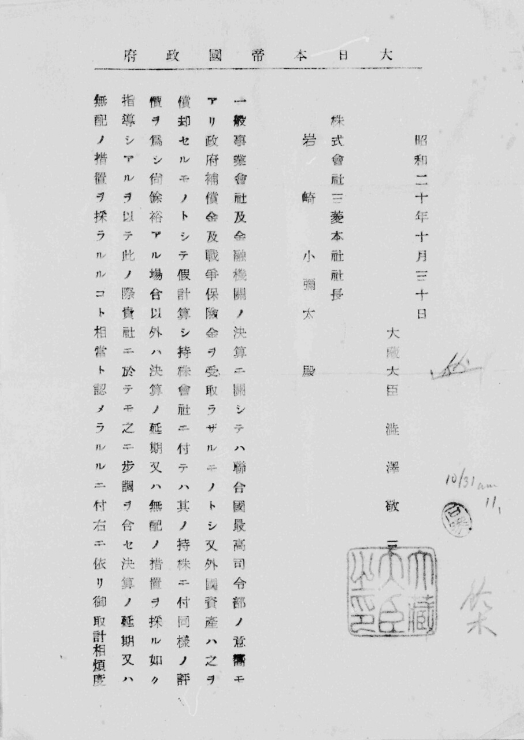 大日本帝國政府
昭和二十年十月三十日
大藏大臣 澁澤敬三
株式會社三菱本社社長
岩崎小彌太 殿
一般事業會社及金融機關ノ決算ニ關シテハ聯合國最高司令部ノ意嚮モ
アリ政府補償金及戰爭保險金ヲ受取ラザルモノトシ又外國資產ハ之ヲ
償却セルモノトシテ假計算シ持株會社ニ付テハ其ノ持株ニ付同樣ノ評
價ヲ爲シ尙餘裕アル場合以外ハ決算ノ延期又ハ無配ノ措置ヲ採ル如ク
指導シアルヲ以テ此ノ際貴社ニ於テモ之ニ步調ヲ合セ決算ノ延期又ハ
無配ノ措置ヲ採ラルルコト相當ト認メラルルニ付右ニ依リ御取計相煩度
10/31 a.m.
11,
大藏大臣之印